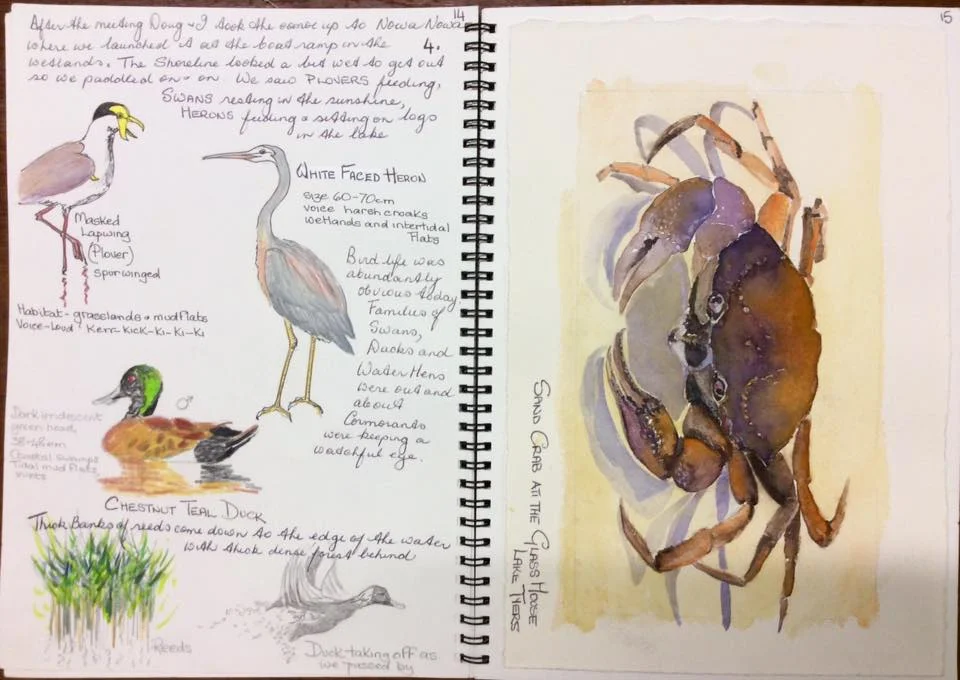 14
After the meeting Doug + I took the canoe up to Nowa Nowa
4.
where we launched it at the boat ramp in the
wetlands. The Shoreline looked a bit wet to get out
so we paddled on + on. We saw PLOVERS feeding,
SWANS resting in the sunshine,
HERONS feeding + sitting on logs
in the lake
WHITE FACED HERON
size 60-70cm
voice harsh croaks
wetlands and intertidal
Flats
Masked
Lapwing
(Plover)
spurwinged
Habitat - grasslands + mudflats
Voice - Loud Kerr-Kick-Ki-Ki-Ki
Bird life was
abundantly
obvious today.
Families of
Swans,
Ducks and
Water Hens
were out and
about
Cormorants
were keeping a
watchful eye.
♂
Dark iridescent
green head
38-48cm
Coastal swamps
Tidal mud flats
CHESTNUT TEAL DUCK
Thick Banks of reeds come down to the edge of the water
with thick dense forest behind
Reeds
Duck taking off as
we passed by
15
SAND CRAB AT THE GLASS HOUSE
LAKE TYERS